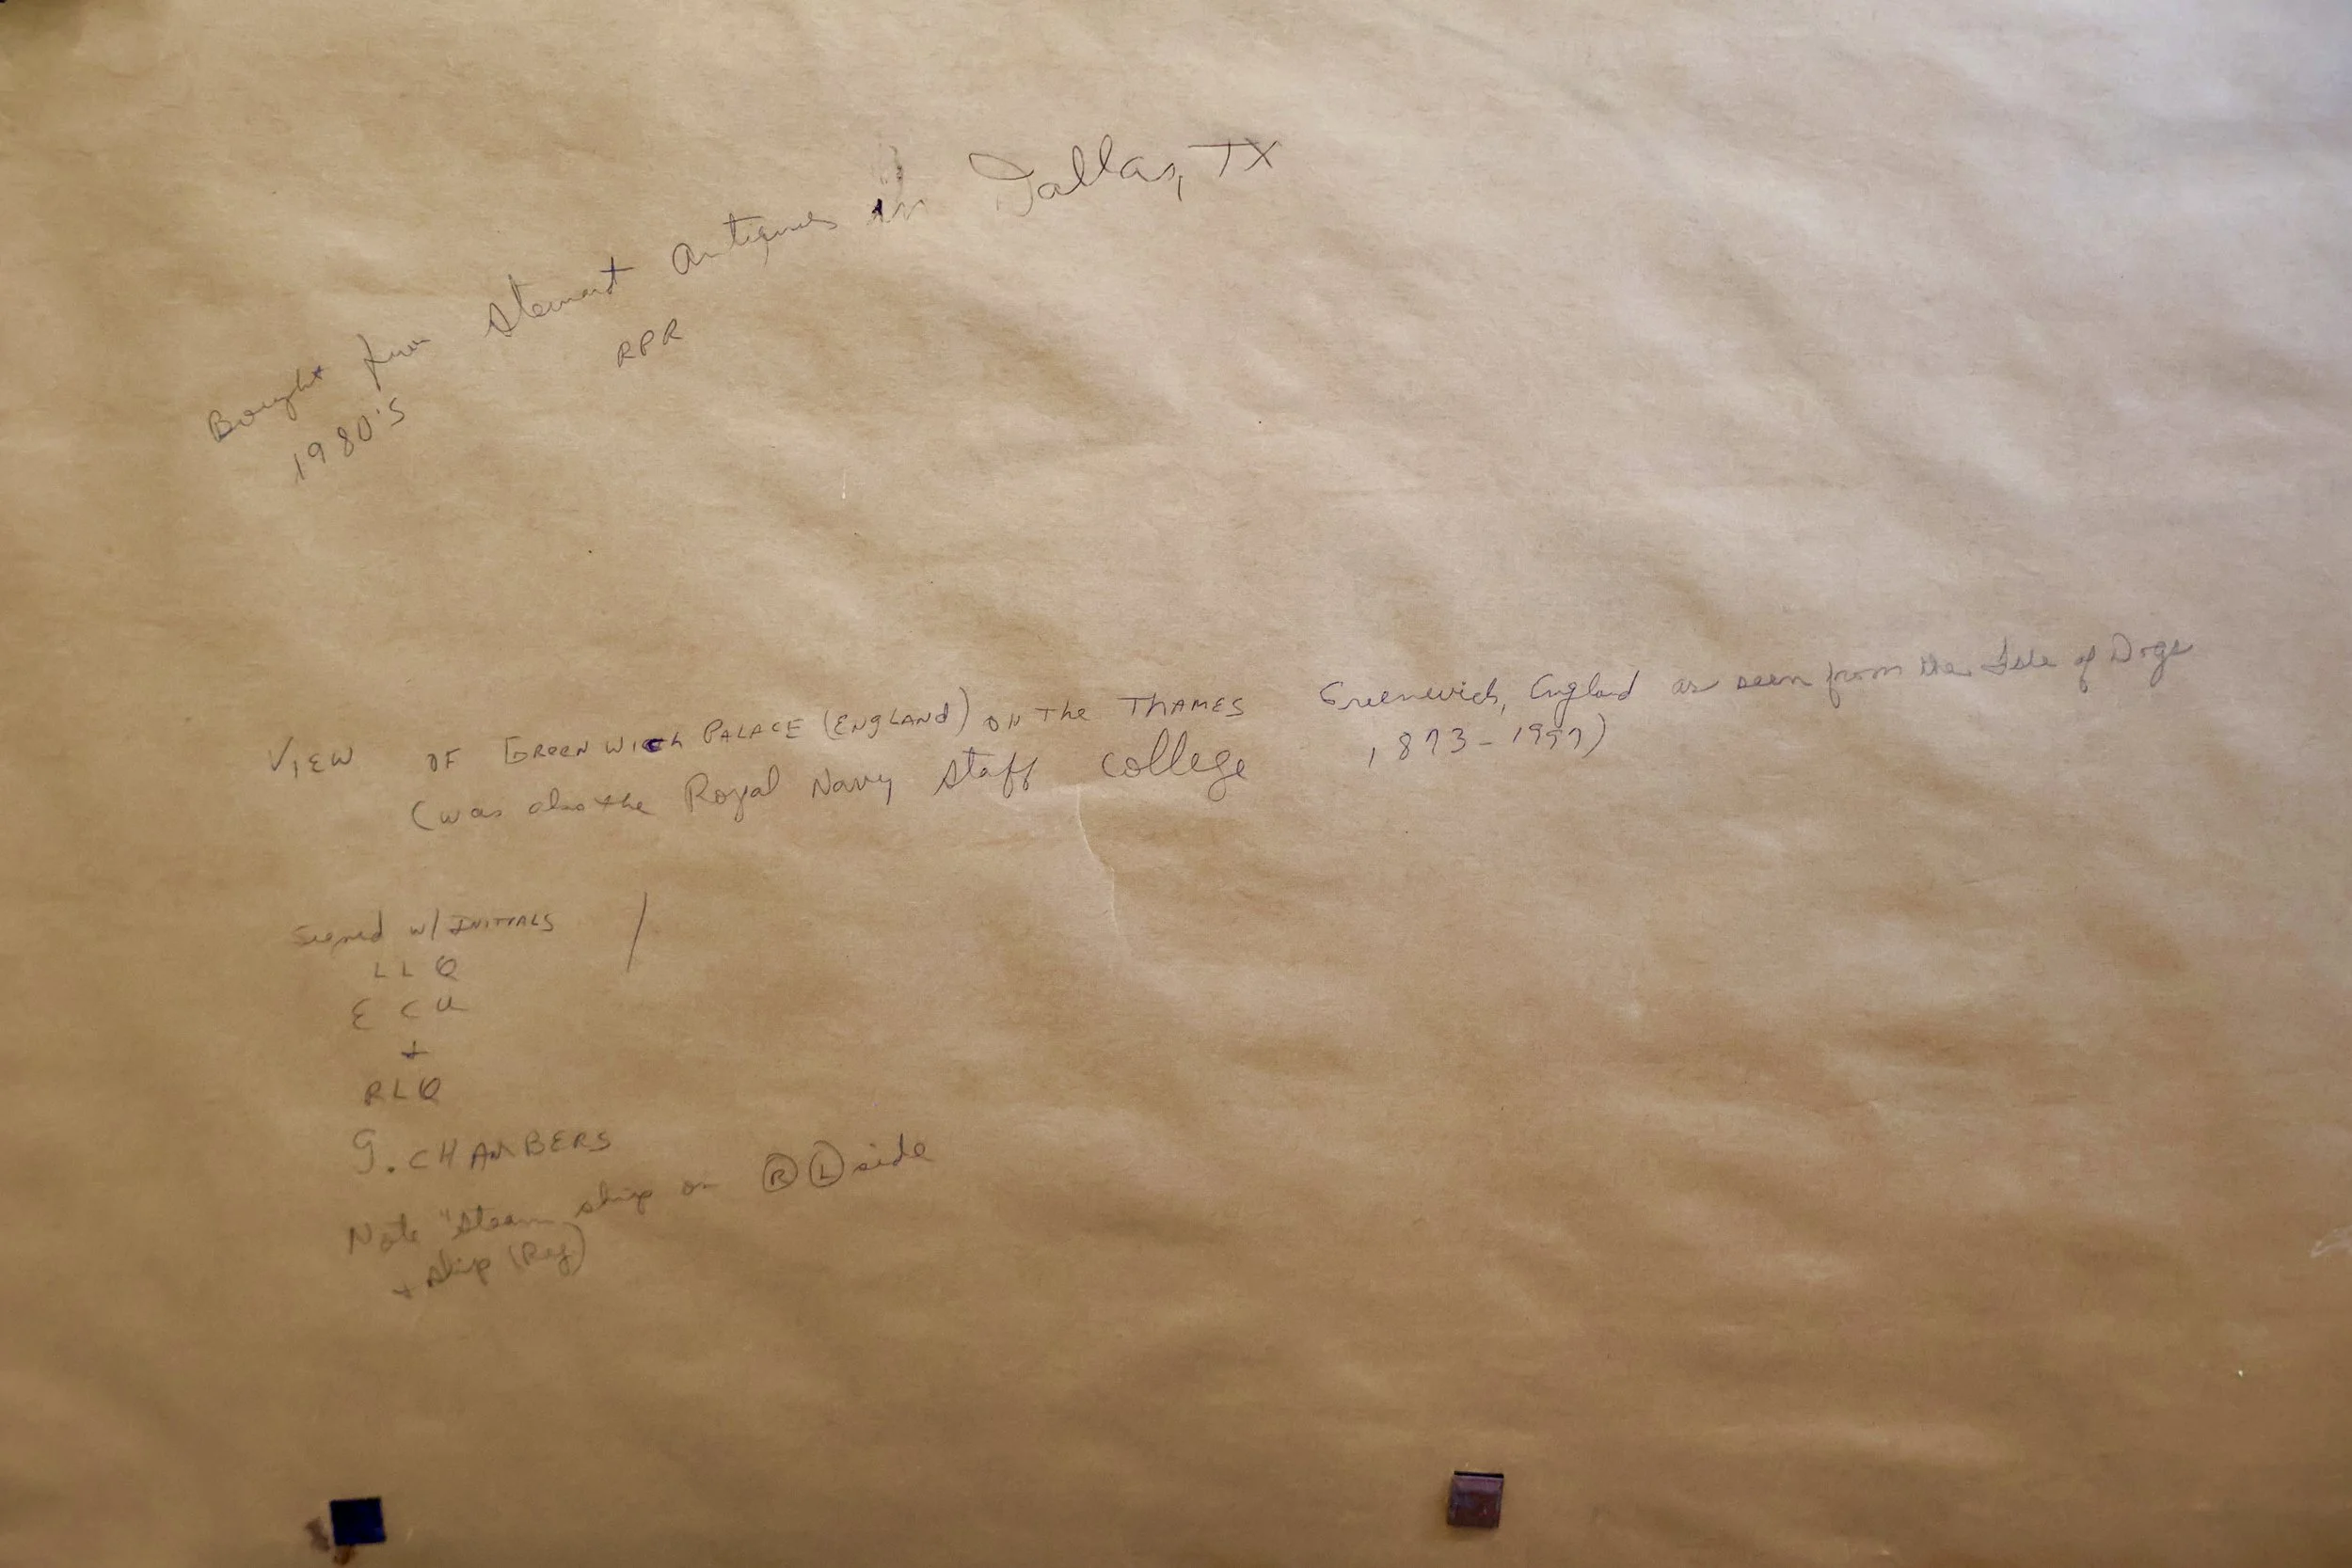 Bought from Stewart Antiques in Dallas, TX
1980's RPR
VIEW OF GREENWICH PALACE (ENGLAND) ON The ThAMES Greenwich, England as seen from the Isle of Dogs
(was also the Royal Navy Staff College 1873-1997)
Signed w/ INITIALS /
LLQ
ECU
+
RLQ
G. CHAMBERS
Note "Steam ship on R L side
+ ship (Reg)